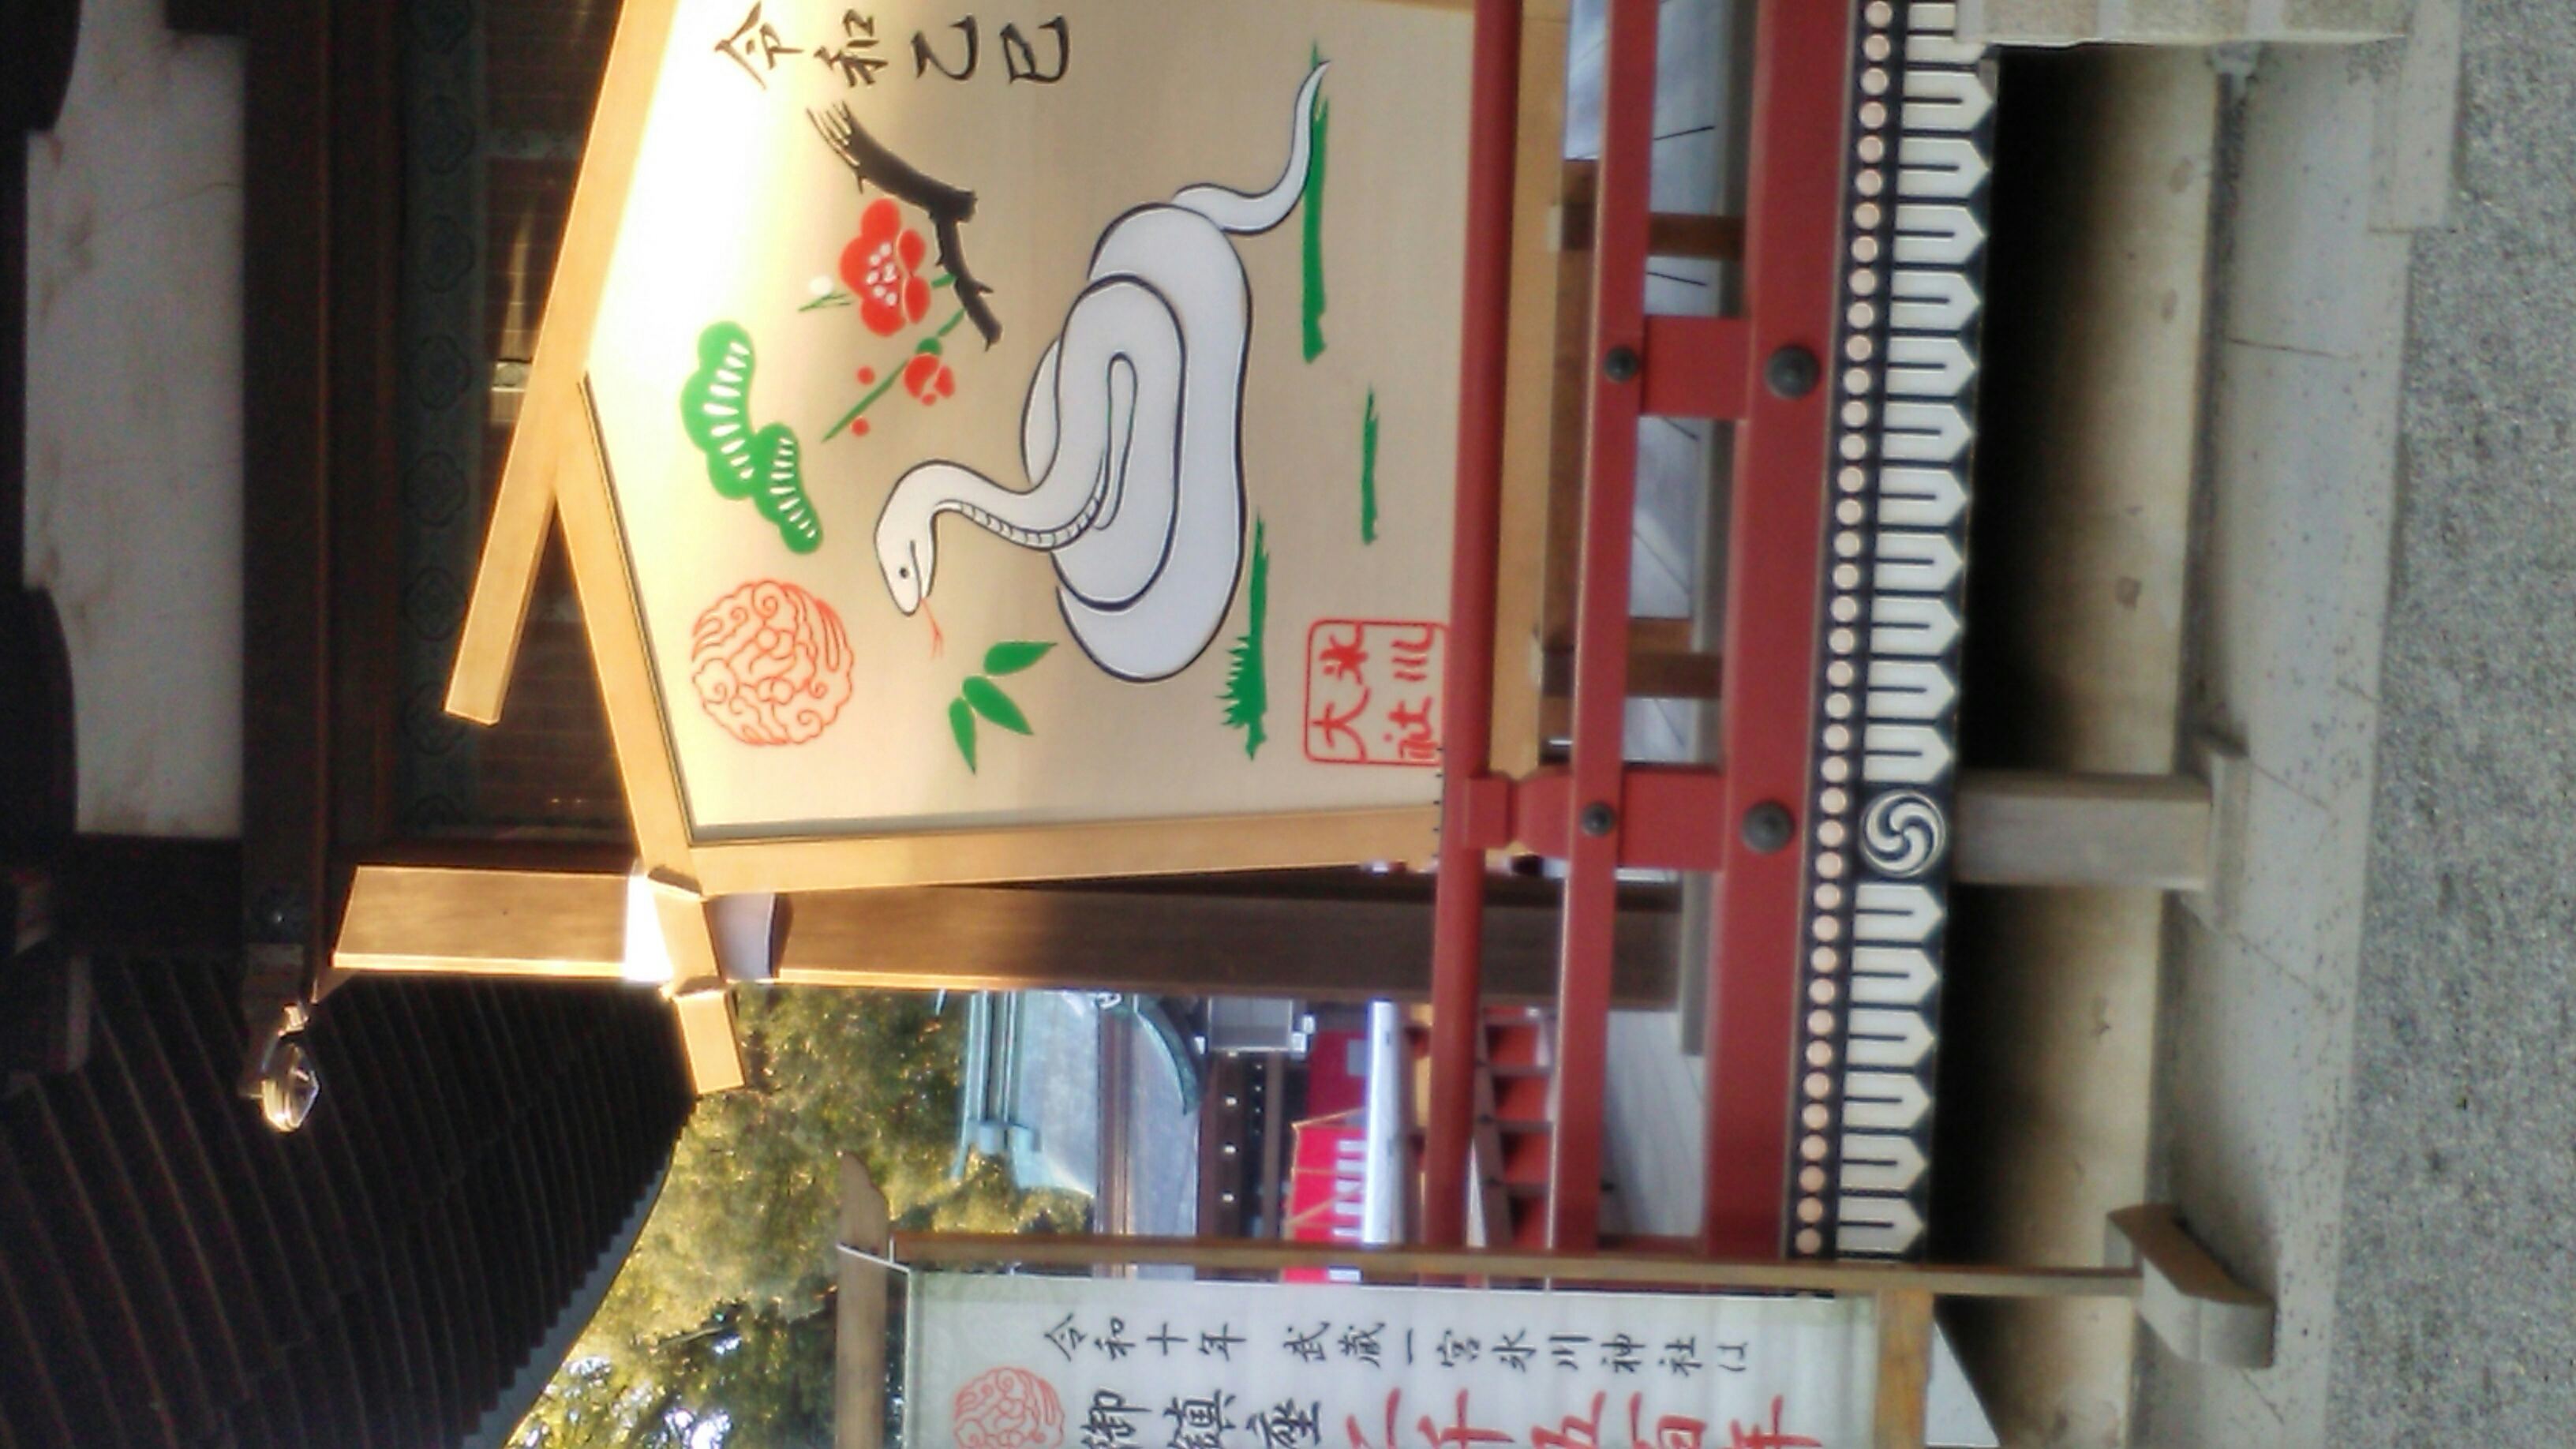 令和乙巳
氷川
大社
令和十年 武蔵一宮氷川神社は
御鎮座二千五百年